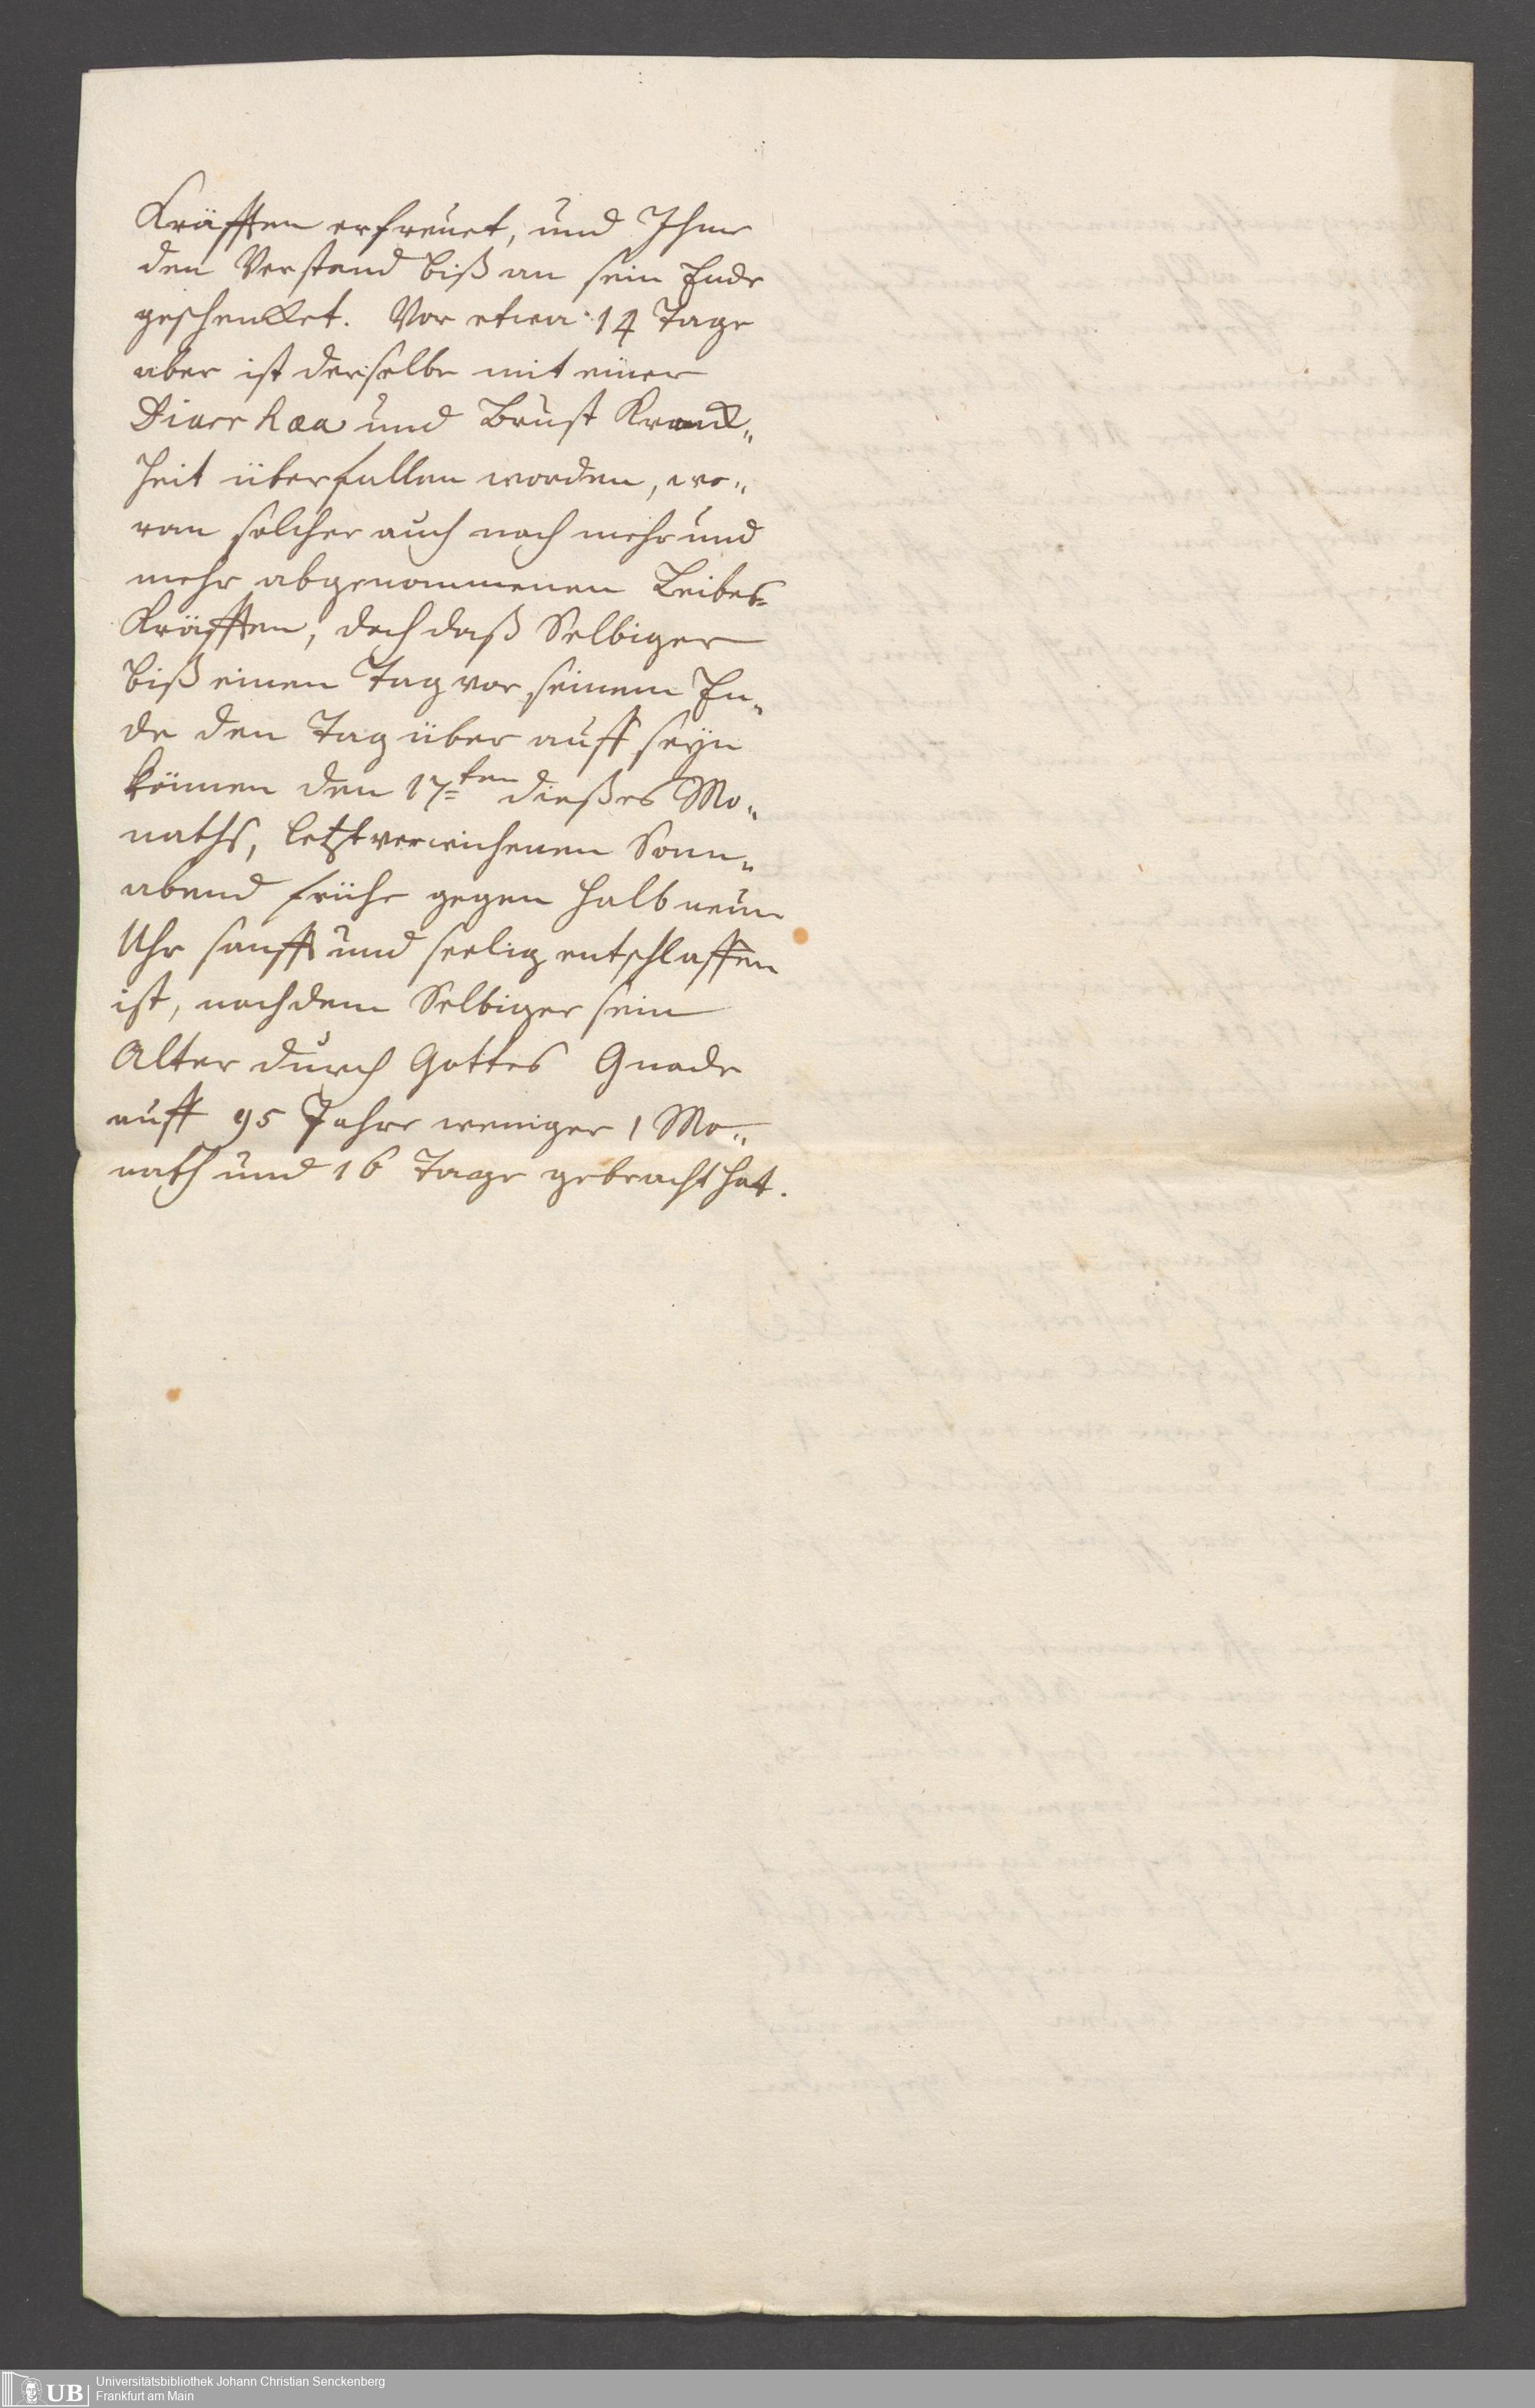 Kräfften erfreuet, und Ihme
den Verstand biß an sein Ende
geschencket. Vor etwa 14 Tage
aber ist derselbe mit einer
Diarrhaea und Brust Kranck„
heit überfallen worden, wo„
ran solcher auch nach mehr und
mehr abgenommenen Leibes=
Kräfften, doch daß Selbiger
biß einen Tag vor seinem En„
de den Tag über auff seyn
können den 17ten dießes Mo„
naths, letztverwichenen Sonn„
abend frühe gegen halb neun
Uhr sanfft und seelig entschlaffen
ist, nachdem Selbiger sein
Alter durch Gottes Gnade
auff 95 Jahre weniger 1 Mo„
nath und 16 Tage gebracht hat.
UB
Universitätsbibliothek Johann Christian Senckenberg
Frankfurt am Main